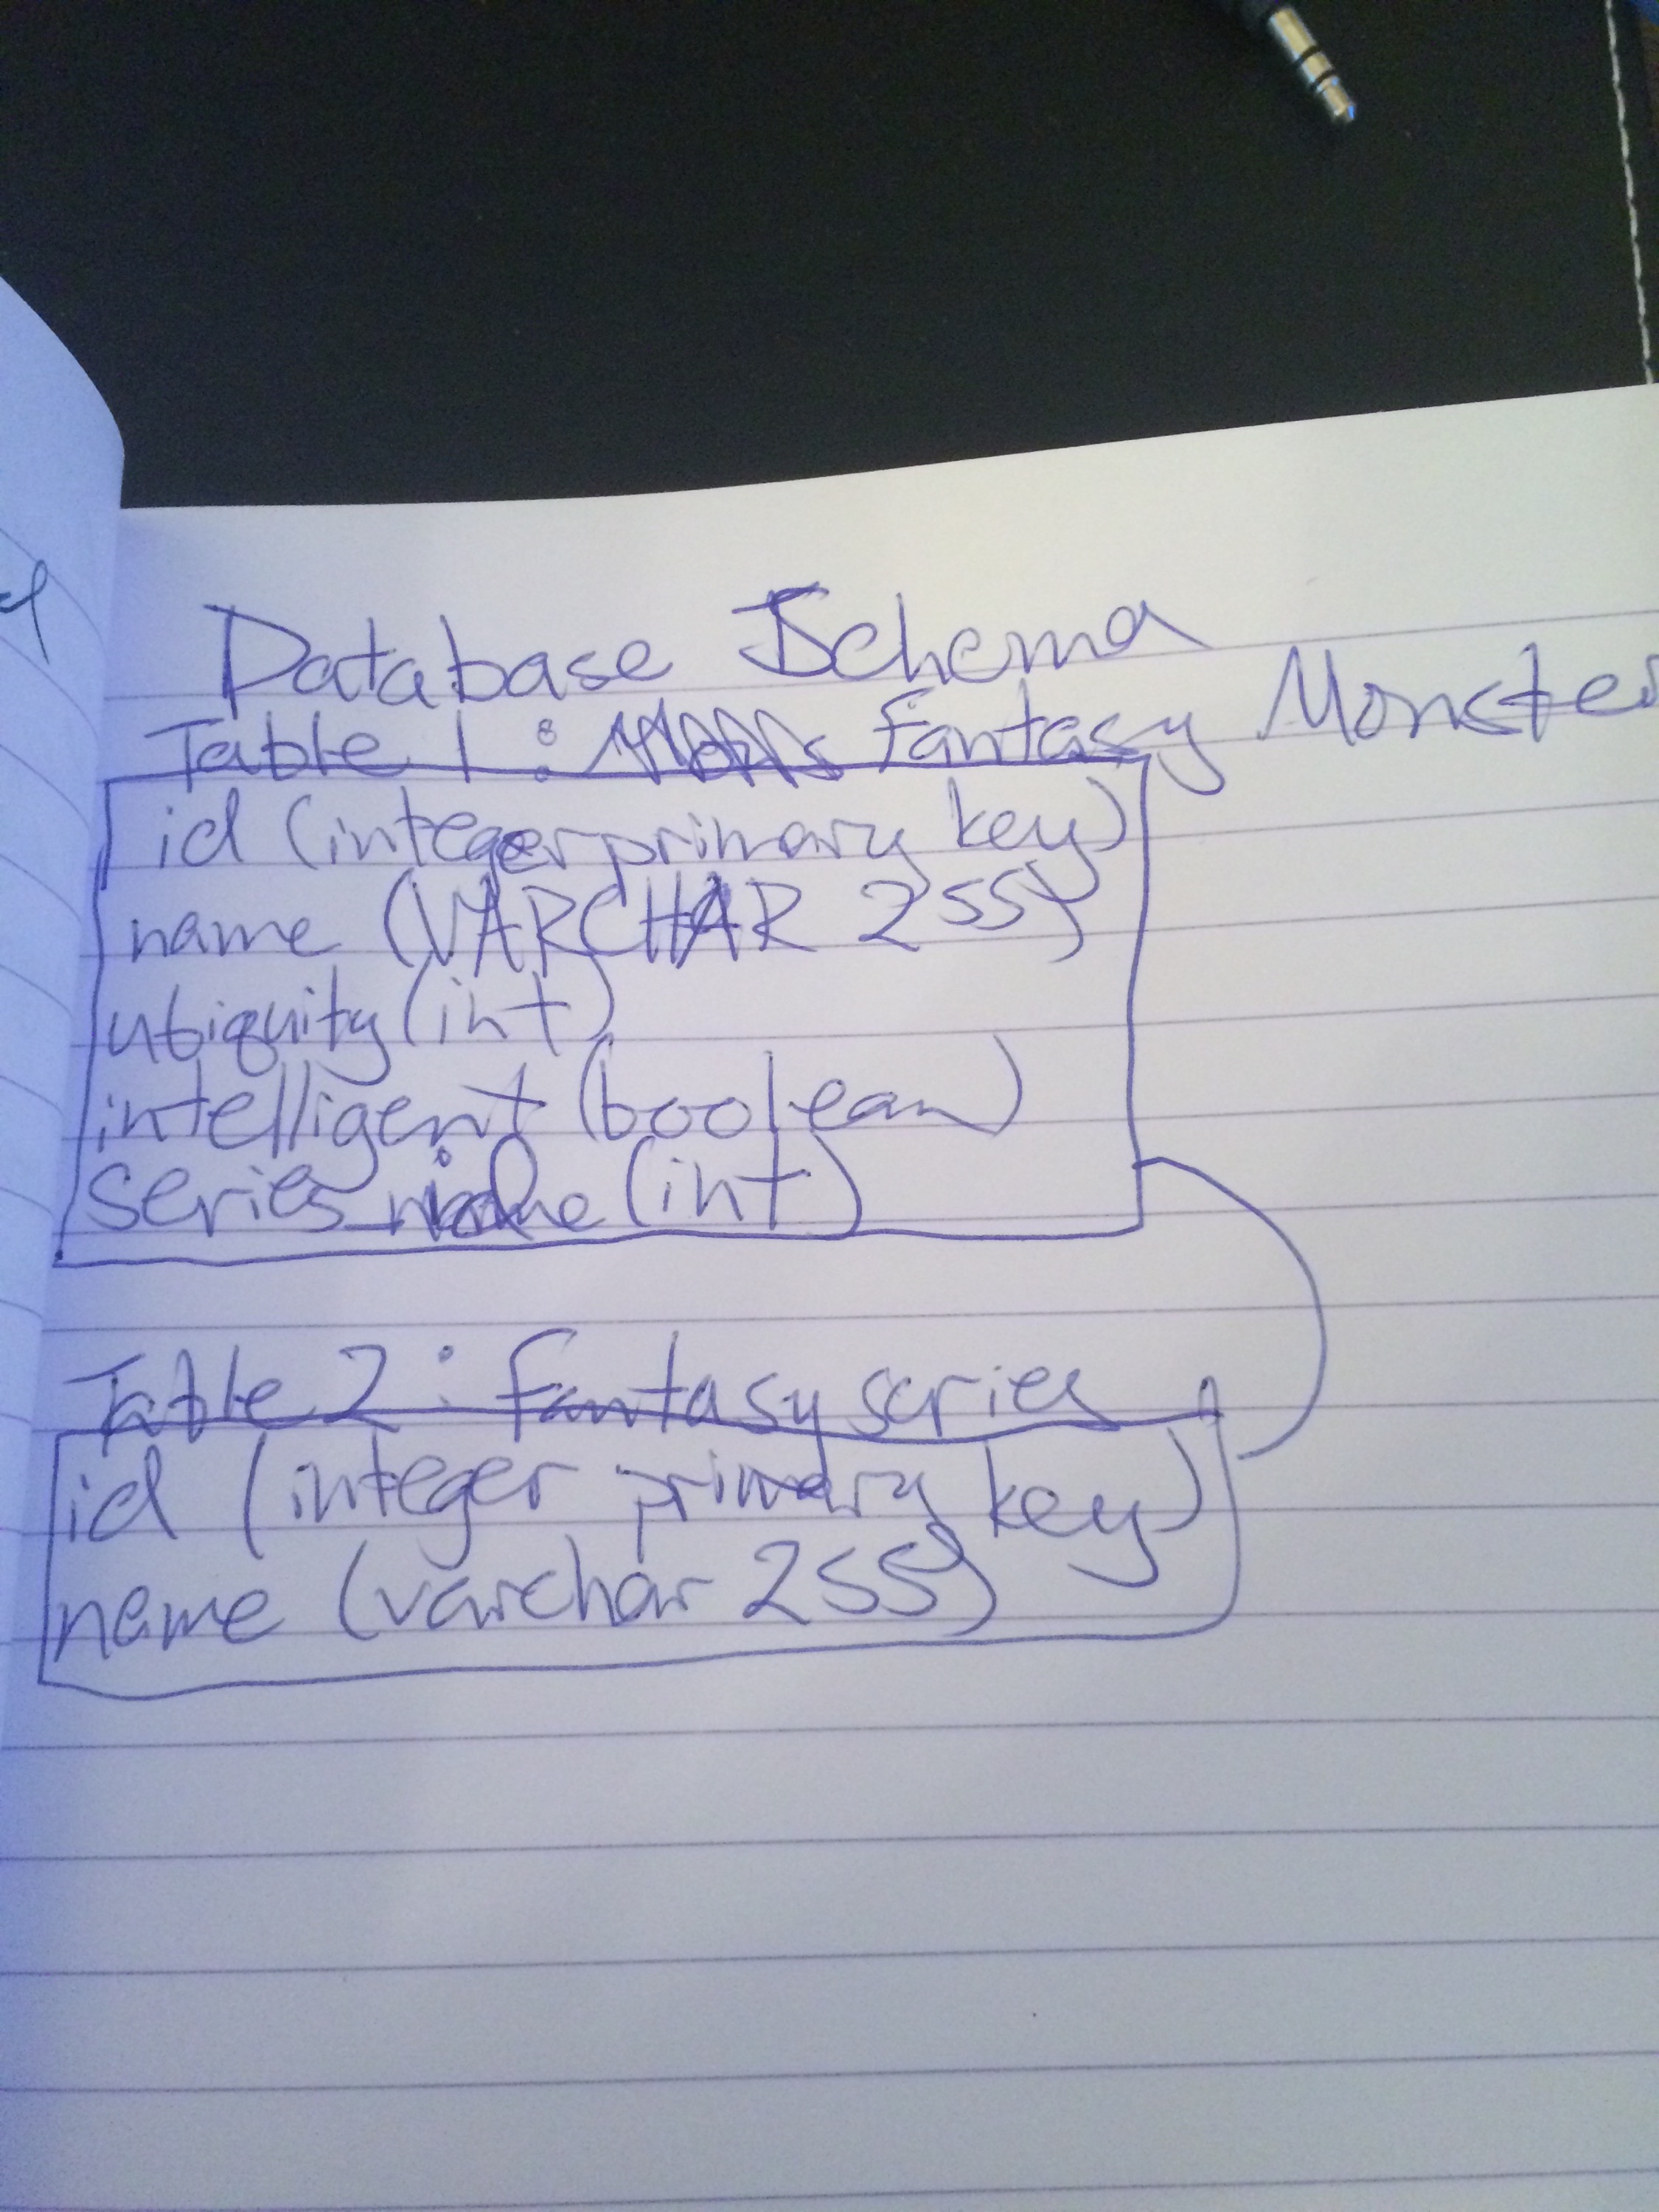 Database Schema
Table 1: Fantasy Monste
id (integer primary key)
name (VARCHAR 255)
ubiquity (int)
intelligent (boolean)
series_id (int)
Table 2: Fantasy series
id (integer primary key)
name (varchar 255)